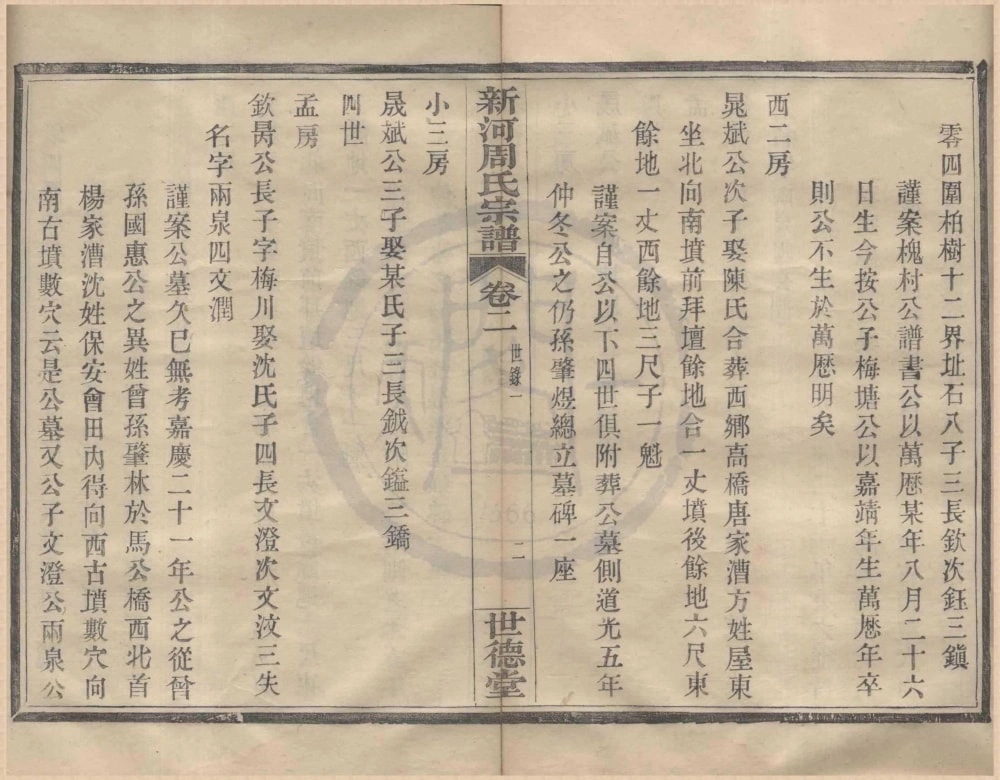 零四圍柏樹十二界址石八子三長欽次鈺三鎮
謹案槐村公譜書公以萬厯某年八月二十六
日生今按公子梅塘公以嘉靖年生萬厯年卒
則公不生於萬厯明矣
西二房
晁斌公次子娶陳氏合葬西鄉高橋唐家漕方姓屋東
坐北向南墳前拜壇餘地合一丈墳後餘地六尺東
餘地一丈西餘地三尺子一魁
謹案自公以下四世俱附葬公墓側道光五年
仲冬公之仍孫肇煜總立墓碑一座
新河周氏宗譜
卷二
世錄一
二
世德堂
小三房
晟斌公三子娶某氏子三長鉞次鎰三鐈
四世
孟房
欽昺公長子字梅川娶沈氏子四長文澄次文汶三失
名字兩泉四文潤
謹案公墓久已無考嘉慶二十一年公之從曾
孫國惠公之異姓曾孫肇林於馬公橋西北首
楊家漕沈姓保安會田內得向西古墳數穴向
南古墳數穴云是公墓又公子文澄公兩泉公